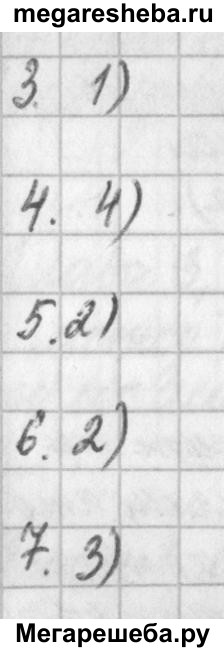 megaresheba.ru
3. 1)
4. 4)
5. 2)
6. 2)
7. 3)
Мегарешеба.ру